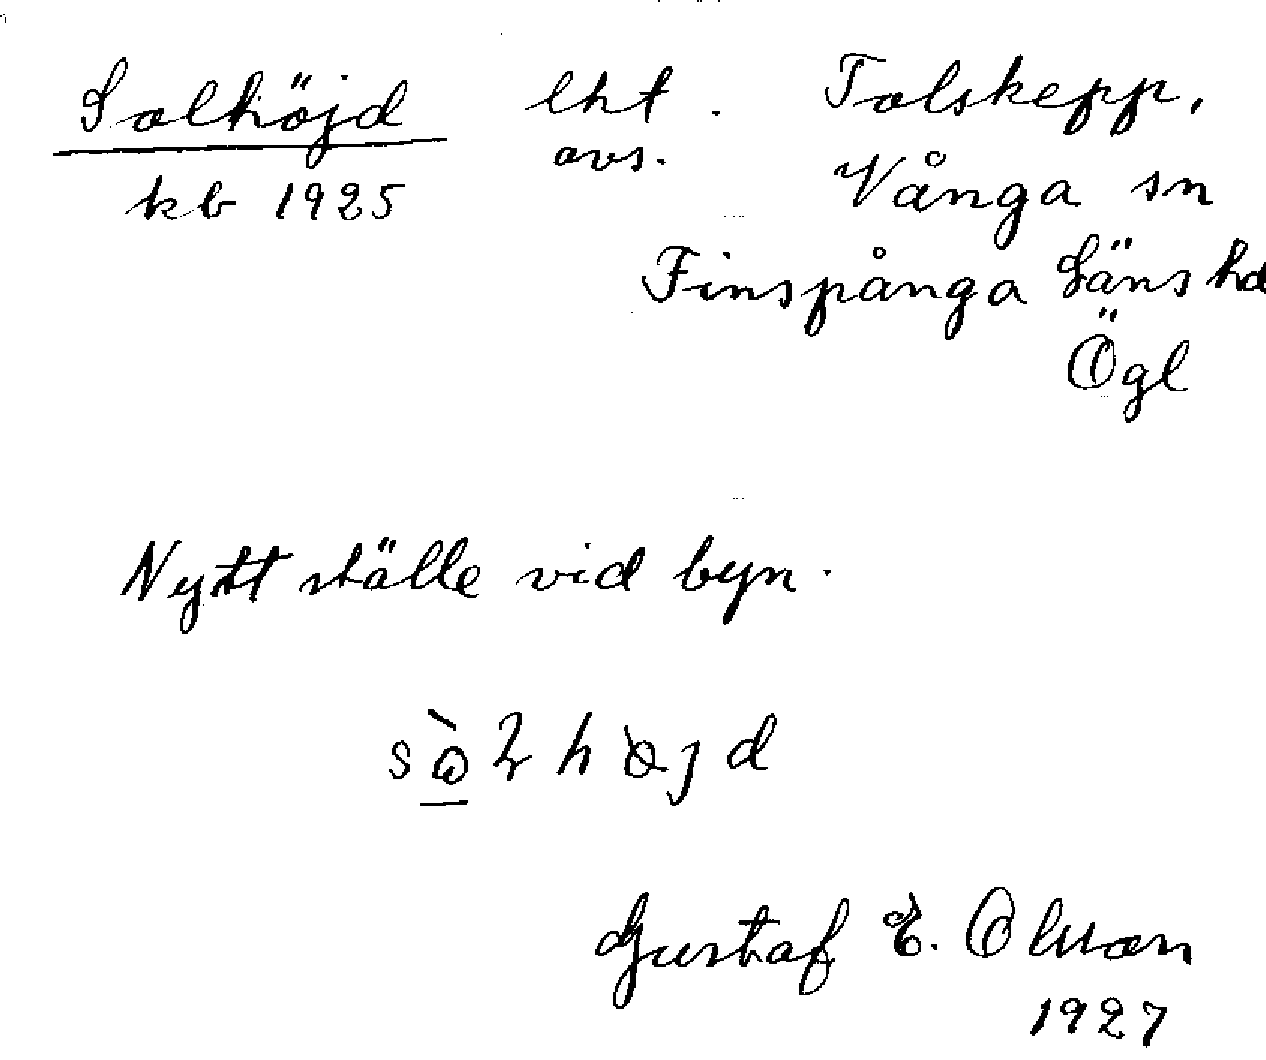 Solhöjd lht. Tolskepp,
avs.
kb 1925 Vånga sn
Finspånga Läns hd
Ögl
Nytt ställe vid byn.
Gustaf E. Olsson
1927